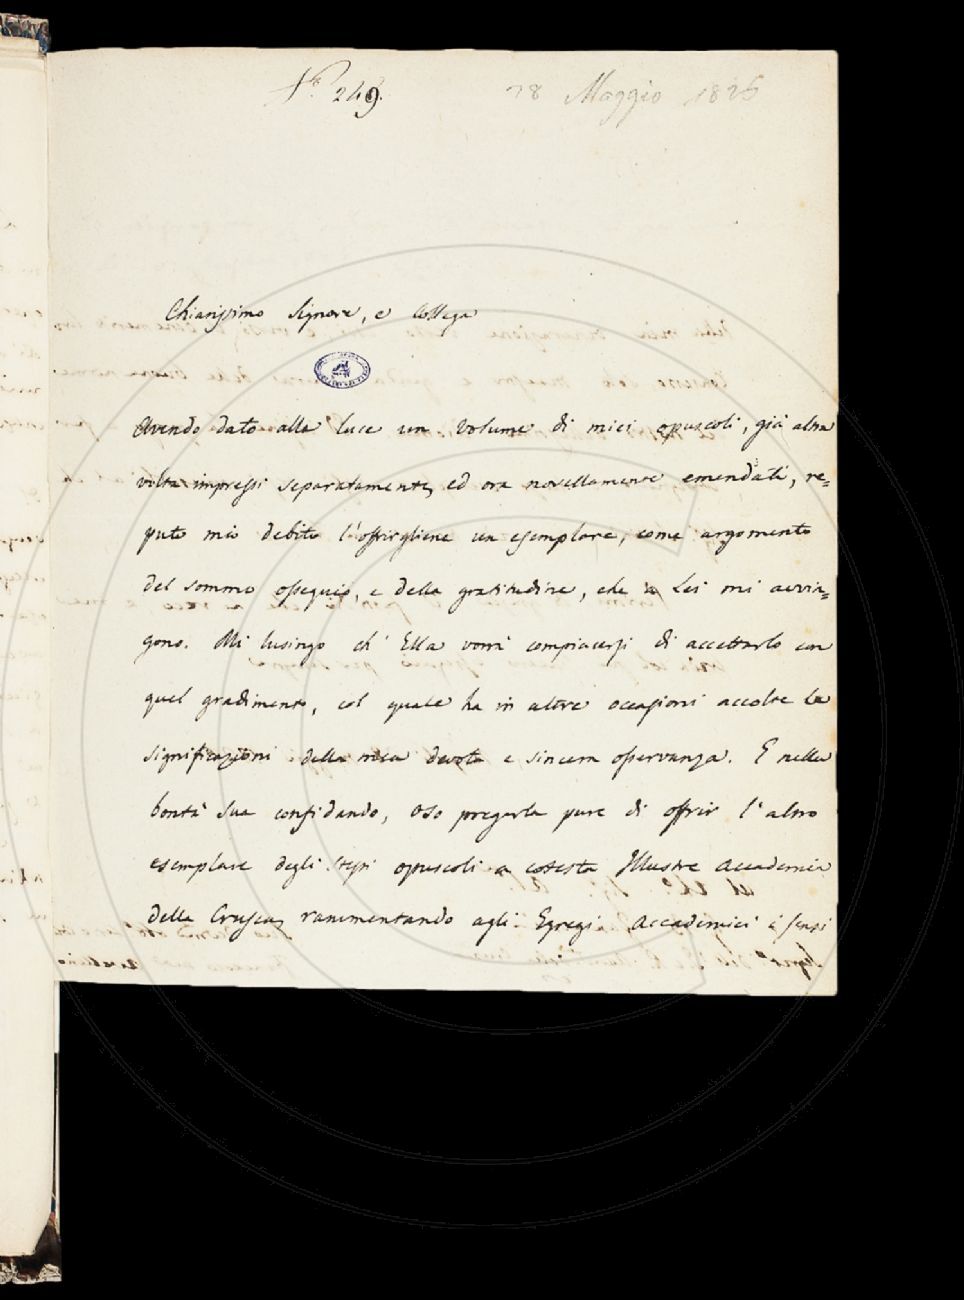 N.° 249.
28 Maggio 1826
Chiarissimo Signore, e Collega
Avendo dato alla luce un volume di miei opuscoli, già altra
volta impressi separatamente, ed ora novellamente emendati, re=
puto mio debito l'offrirgliene un esemplare, come argomento
del sommo ossequio, e della gratitudine, che a Lei mi avvin=
gono. Mi lusingo ch' Ella vorrà compiacersi di accettarlo con
quel gradimento, col quale ha in altre occasioni accolte le
significazioni della mia devota e sincera osservanza. E nella
bontà Sua confidando, oso pregarla pure di offrir l'altro
esemplare degli stessi opuscoli a cotesta Illustre Accademia
della Crusca, rammentando agli Egregi Accademici i sensi